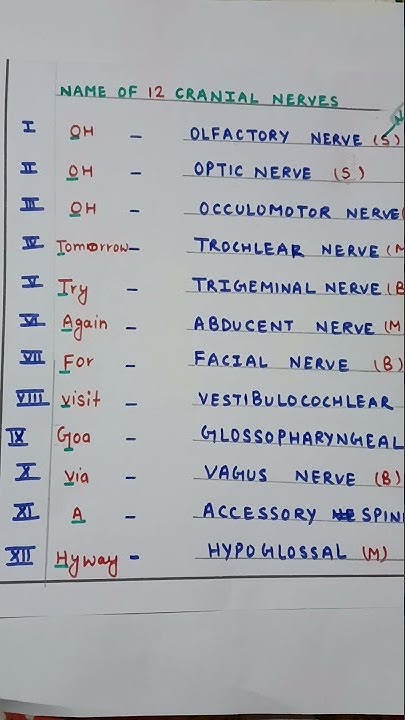 NAME OF 12 CRANIAL NERVES
I OH - OLFACTORY NERVE (S)
II OH - OPTIC NERVE (S)
III OH - OCCULOMOTOR NERVE(
IV Tomorrow - TROCHLEAR NERVE (M
V Try - TRIGEMINAL NERVE (B
VI Again - ABDUCENT NERVE (M
VII For - FACIAL NERVE (B)
VIII visit - VESTIBULOCOCHLEAR
IX Goa - GLOSSOPHARYNGEAL
X via - VAGUS NERVE (B)
XI A - ACCESSORY SPIN
XII Hyway - HYPOGLOSSAL (M)